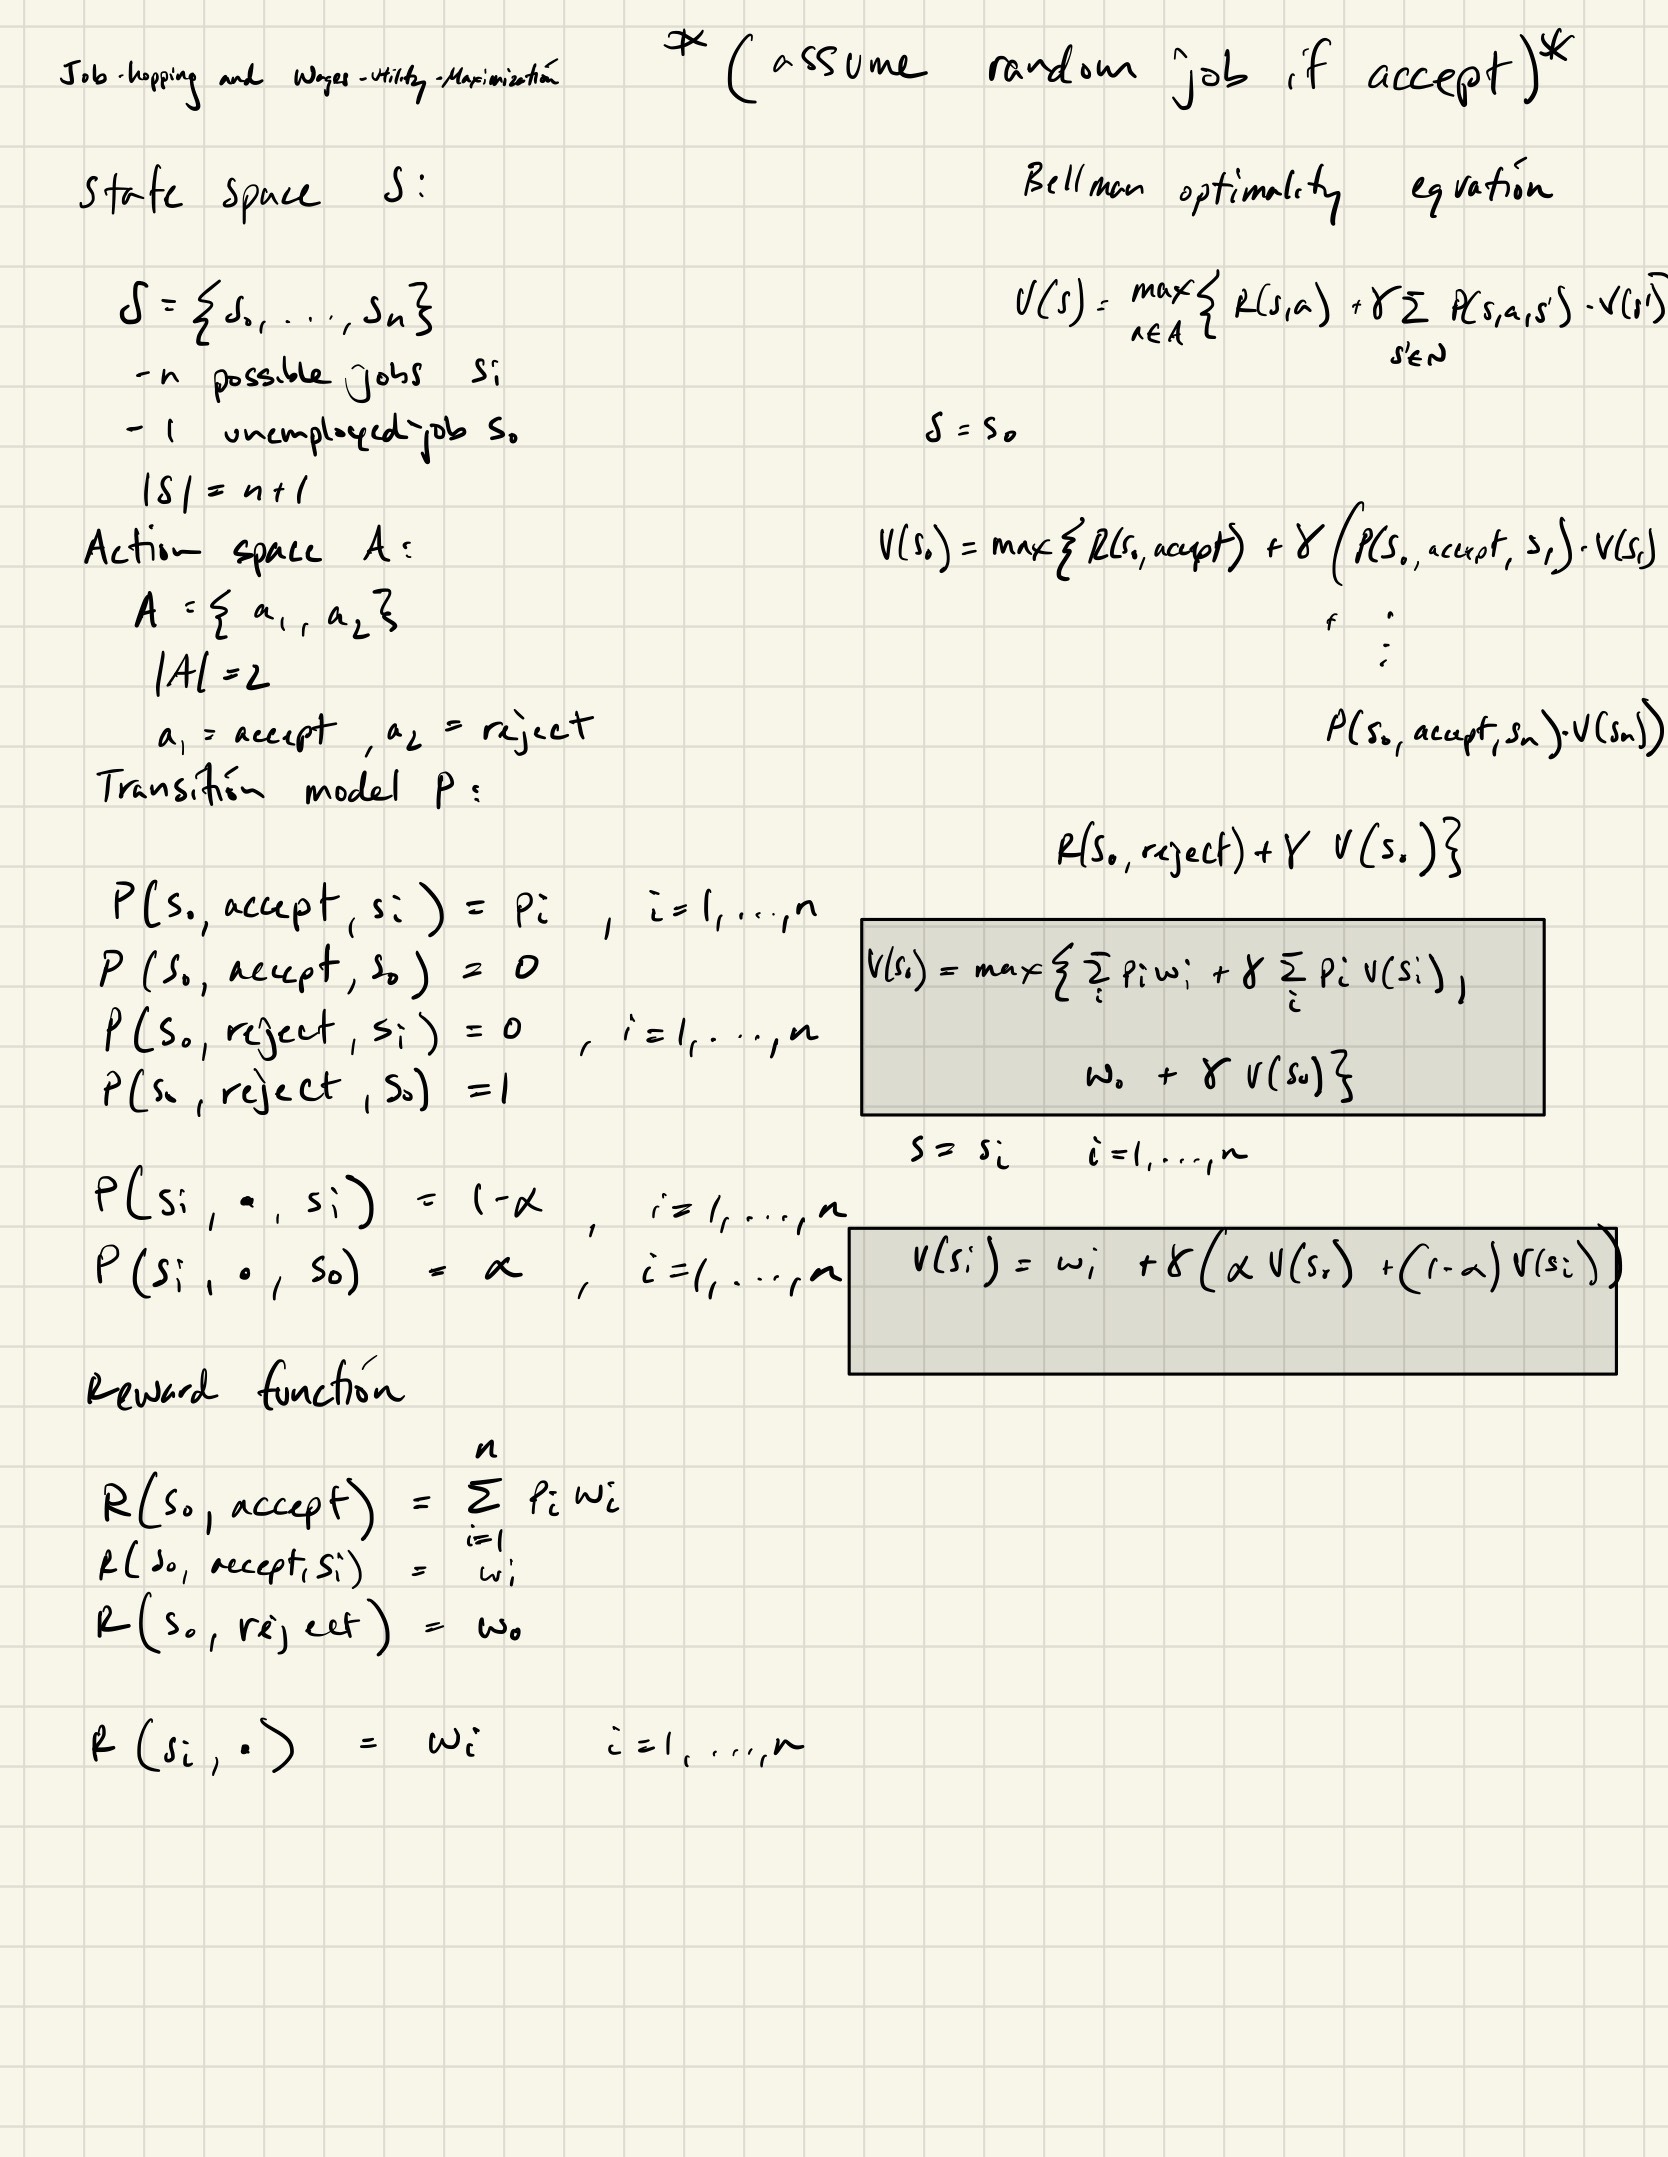 Job-hopping and Wages-Utility-Maximization
* (assume random job if accept) *
State space S:
S = {s₀, ..., sₙ}
- n possible jobs sᵢ
- 1 unemployed-job s₀
|S| = n+1
Action space A:
A = {a₁, a₂}
|A| = 2
a₁ = accept, a₂ = reject
Transition model P:
P(s₀, accept, sᵢ) = pᵢ , i=1,...,n
P(s₀, accept, s₀) = 0
P(s₀, reject, sᵢ) = 0 , i=1,...,n
P(s₀, reject, s₀) = 1
P(sᵢ, ·, sᵢ) = 1-α , i=1,...,n
P(sᵢ, ·, s₀) = α , i=1,...,n
Reward function
R(s₀, accept) = Σᵢ₌₁ⁿ pᵢ wᵢ
R(s₀, accept, sᵢ) = wᵢ
R(s₀, reject) = w₀
R(sᵢ, ·) = wᵢ i=1,...,n
Bellman optimality equation
V(s) = max_{a∈A} { R(s,a) + γ Σ_{s'∈N} P(s,a,s') · V(s')
S = s₀
V(s₀) = max{ R(s₀, accept) + γ (P(s₀, accept, s₁) · V(s₁)
+ ⋮
P(s₀, accept, sₙ) · V(sₙ))
R(s₀, reject) + γ V(s₀)}
V(s₀) = max{ Σᵢ pᵢ wᵢ + γ Σᵢ pᵢ V(sᵢ),
w₀ + γ V(s₀)}
s = sᵢ i=1,...,n
V(sᵢ) = wᵢ + γ(α V(s₀) + (1-α) V(sᵢ))